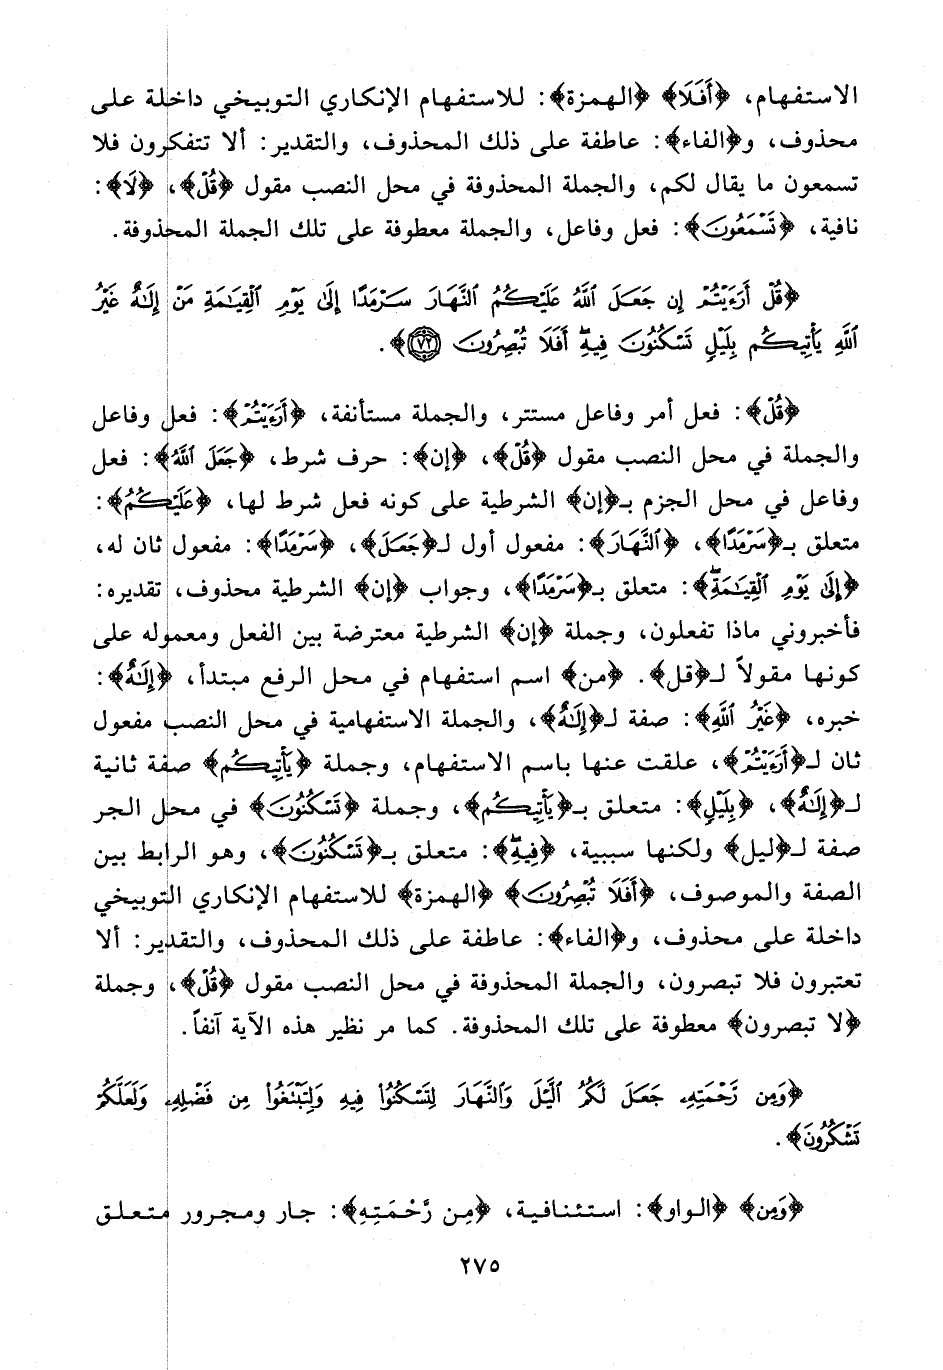 الاستفهام، ﴿أَفَلَا﴾ ﴿الهمزة﴾: للاستفهام الإنكاري التوبيخي داخلة على
محذوف، و﴿الفاء﴾: عاطفة على ذلك المحذوف، والتقدير: ألا تتفكرون فلا
تسمعون ما يقال لكم، والجملة المحذوفة في محل النصب مقول ﴿قُلْ﴾، ﴿لَا﴾:
نافية، ﴿تَسْمَعُونَ﴾: فعل وفاعل، والجملة معطوفة على تلك الجملة المحذوفة.
﴿قُلْ أَرَءَيْتُمْ إِن جَعَلَ ٱللَّهُ عَلَيْكُمُ ٱلنَّهَارَ سَرْمَدًا إِلَىٰ يَوْمِ ٱلْقِيَـٰمَةِ مَنْ إِلَـٰهٌ غَيْرُ
ٱللَّهِ يَأْتِيكُم بِلَيْلٍ تَسْكُنُونَ فِيهِ ۖ أَفَلَا تُبْصِرُونَ ۝٧٢﴾.
﴿قُلْ﴾: فعل أمر وفاعل مستتر، والجملة مستأنفة، ﴿أَرَءَيْتُمْ﴾: فعل وفاعل
والجملة في محل النصب مقول ﴿قُلْ﴾، ﴿إِن﴾: حرف شرط، ﴿جَعَلَ ٱللَّهُ﴾: فعل
وفاعل في محل الجزم بـ﴿إن﴾ الشرطية على كونه فعل شرط لها، ﴿عَلَيْكُمُ﴾:
متعلق بـ﴿سَرْمَدًا﴾، ﴿ٱلنَّهَارَ﴾: مفعول أول لـ﴿جَعَلَ﴾، ﴿سَرْمَدًا﴾: مفعول ثان له،
﴿إِلَىٰ يَوْمِ ٱلْقِيَـٰمَةِ ۖ﴾: متعلق بـ﴿سَرْمَدًا﴾، وجواب ﴿إن﴾ الشرطية محذوف، تقديره:
فأخبروني ماذا تفعلون، وجملة ﴿إن﴾ الشرطية معترضة بين الفعل ومعموله على
كونها مقولاً لـ﴿قل﴾. ﴿من﴾ اسم استفهام في محل الرفع مبتدأ، ﴿إِلَـٰهٌ﴾:
خبره، ﴿غَيْرُ ٱللَّهِ﴾: صفة لـ﴿إِلَـٰهٌ﴾، والجملة الاستفهامية في محل النصب مفعول
ثان لـ﴿أَرَءَيْتُمْ﴾، علقت عنها باسم الاستفهام، وجملة ﴿يَأْتِيكُم﴾ صفة ثانية
لـ﴿إِلَـٰهٌ﴾، ﴿بِلَيْلٍ﴾: متعلق بـ﴿يَأْتِيكُم﴾، وجملة ﴿تَسْكُنُونَ﴾ في محل الجر
صفة لـ﴿ليل﴾ ولكنها سببية، ﴿فِيهِ ۖ﴾: متعلق بـ﴿تَسْكُنُونَ﴾، وهو الرابط بين
الصفة والموصوف، ﴿أَفَلَا تُبْصِرُونَ﴾ ﴿الهمزة﴾ للاستفهام الإنكاري التوبيخي
داخلة على محذوف، و﴿الفاء﴾: عاطفة على ذلك المحذوف، والتقدير: ألا
تعتبرون فلا تبصرون، والجملة المحذوفة في محل النصب مقول ﴿قُلْ﴾، وجملة
﴿لا تبصرون﴾ معطوفة على تلك المحذوفة. كما مر نظير هذه الآية آنفاً.
﴿وَمِن رَّحْمَتِهِۦ جَعَلَ لَكُمُ ٱلَّيْلَ وَٱلنَّهَارَ لِتَسْكُنُوا۟ فِيهِ وَلِتَبْتَغُوا۟ مِن فَضْلِهِۦ وَلَعَلَّكُمْ
تَشْكُرُونَ﴾.
﴿وَمِن﴾ ﴿الواو﴾: استئنافية، ﴿مِن رَّحْمَتِهِ﴾: جار ومجرور متعلق
٢٧٥